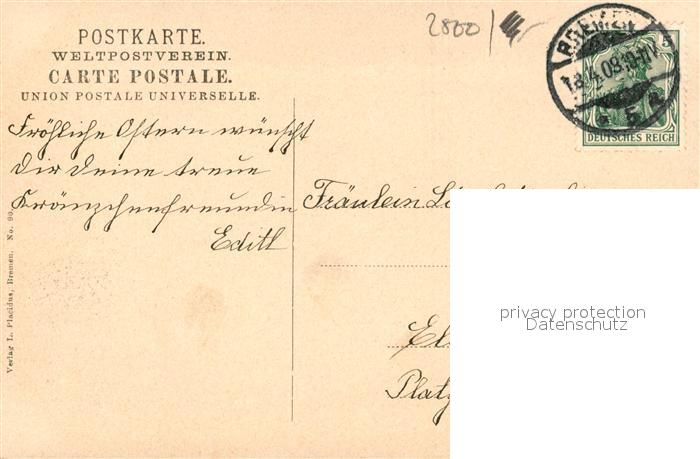 2800
POSTKARTE.
WELTPOSTVEREIN.
CARTE POSTALE.
UNION POSTALE UNIVERSELLE.
BREMEN
18.4.08
5 a
5
DEUTSCHES REICH
Fröhliche Ostern wünscht
dir deine treue
Kränzchenfreundin
Edith
Fräulein
Platz
Verlag L. Placidus, Bremen. No. 90.
privacy protection
Datenschutz